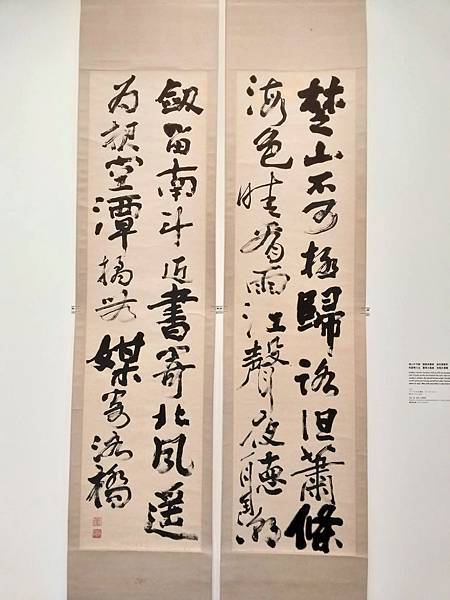 楚山不可極歸路但蕭條
海色晴看雨江聲夜聽潮
劍留南斗近書寄北風遙
為報空潭橘無媒寄洛橋